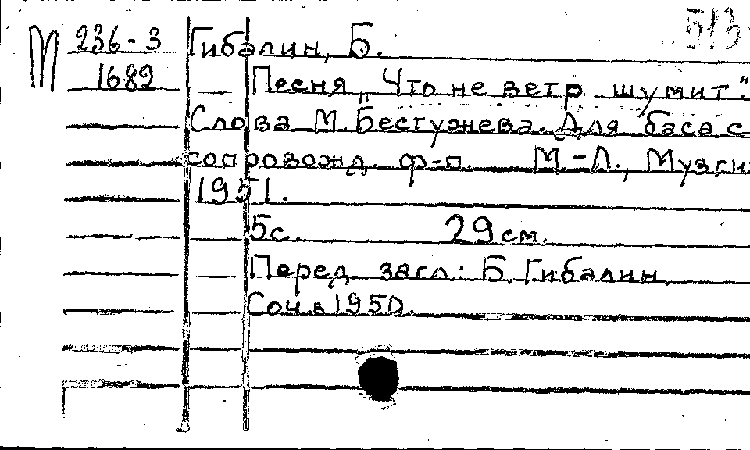 513
М 236-3 Гибалин, Б.
1682 Песня „Что не ветр шумит".
Слова М. Бестужева. Для баса с
сопровожд. ф-п. М.-Л., Музги
1951.
5с. 29 см.
Перед загл: Б. Гибалин
Соч. в 1950.